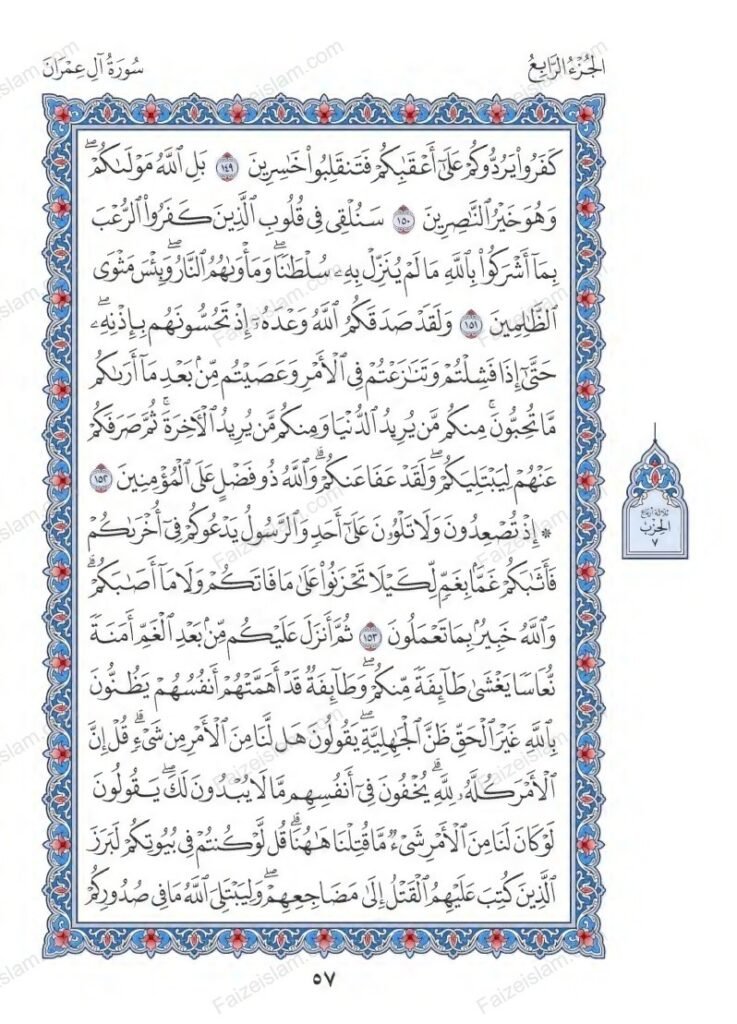 الجُزْءُ الرَّابِعُ
سُورَةُ آلِ عِمْرَانَ
كَفَرُوا۟ يَرُدُّوكُمْ عَلَىٰٓ أَعْقَـٰبِكُمْ فَتَنقَلِبُوا۟ خَـٰسِرِينَ ١٤٩ بَلِ ٱللَّهُ مَوْلَىٰكُمْ ۖ
وَهُوَ خَيْرُ ٱلنَّـٰصِرِينَ ١٥٠ سَنُلْقِى فِى قُلُوبِ ٱلَّذِينَ كَفَرُوا۟ ٱلرُّعْبَ
بِمَآ أَشْرَكُوا۟ بِٱللَّهِ مَا لَمْ يُنَزِّلْ بِهِۦ سُلْطَـٰنًا ۖ وَمَأْوَىٰهُمُ ٱلنَّارُ ۖ وَبِئْسَ مَثْوَى
ٱلظَّـٰلِمِينَ ١٥١ وَلَقَدْ صَدَقَكُمُ ٱللَّهُ وَعْدَهُۥٓ إِذْ تَحُسُّونَهُم بِإِذْنِهِۦ ۖ
حَتَّىٰٓ إِذَا فَشِلْتُمْ وَتَنَـٰزَعْتُمْ فِى ٱلْأَمْرِ وَعَصَيْتُم مِّنۢ بَعْدِ مَآ أَرَىٰكُم
مَّا تُحِبُّونَ ۚ مِنكُم مَّن يُرِيدُ ٱلدُّنْيَا وَمِنكُم مَّن يُرِيدُ ٱلْـَٔاخِرَةَ ۚ ثُمَّ صَرَفَكُمْ
عَنْهُمْ لِيَبْتَلِيَكُمْ ۖ وَلَقَدْ عَفَا عَنكُمْ ۗ وَٱللَّهُ ذُو فَضْلٍ عَلَى ٱلْمُؤْمِنِينَ ١٥٢
* إِذْ تُصْعِدُونَ وَلَا تَلْوُۥنَ عَلَىٰٓ أَحَدٍ وَٱلرَّسُولُ يَدْعُوكُمْ فِىٓ أُخْرَىٰكُمْ
فَأَثَـٰبَكُمْ غَمًّۢا بِغَمٍّ لِّكَيْلَا تَحْزَنُوا۟ عَلَىٰ مَا فَاتَكُمْ وَلَا مَآ أَصَـٰبَكُمْ ۗ
وَٱللَّهُ خَبِيرٌۢ بِمَا تَعْمَلُونَ ١٥٣ ثُمَّ أَنزَلَ عَلَيْكُم مِّنۢ بَعْدِ ٱلْغَمِّ أَمَنَةً
نُّعَاسًا يَغْشَىٰ طَآئِفَةً مِّنكُمْ ۖ وَطَآئِفَةٌ قَدْ أَهَمَّتْهُمْ أَنفُسُهُمْ يَظُنُّونَ
بِٱللَّهِ غَيْرَ ٱلْحَقِّ ظَنَّ ٱلْجَـٰهِلِيَّةِ ۖ يَقُولُونَ هَل لَّنَا مِنَ ٱلْأَمْرِ مِن شَىْءٍ ۗ قُلْ إِنَّ
ٱلْأَمْرَ كُلَّهُۥ لِلَّهِ ۗ يُخْفُونَ فِىٓ أَنفُسِهِم مَّا لَا يُبْدُونَ لَكَ ۖ يَقُولُونَ
لَوْ كَانَ لَنَا مِنَ ٱلْأَمْرِ شَىْءٌ مَّا قُتِلْنَا هَـٰهُنَا ۗ قُل لَّوْ كُنتُمْ فِى بُيُوتِكُمْ لَبَرَزَ
ٱلَّذِينَ كُتِبَ عَلَيْهِمُ ٱلْقَتْلُ إِلَىٰ مَضَاجِعِهِمْ ۖ وَلِيَبْتَلِىَ ٱللَّهُ مَا فِى صُدُورِكُمْ
ثلاثة أرباع
الحِزْبِ
٧
٥٧
Faizeislam.com